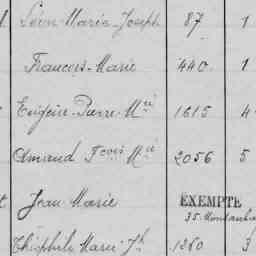 Léon Marie Joseph 87 1
François Marie 440 1
Eugène Pierre Mie 1615 4
Amand Fcois Mie 2056 5
Jean Marie EXEMPTÉ
35. Montauban
Théophile Marie Jh 1360 3